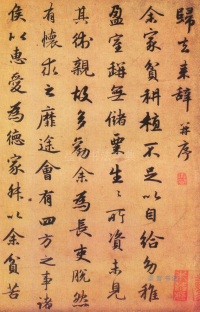 歸去来辭 并序
余家貧耕植不足以自給幼稚
盈室缾無儲粟生生所資未見
其術親故多勸余為長吏脫然
有懷求之靡途會有四方之事諸
侯以惠愛為德家叔以余貧苦